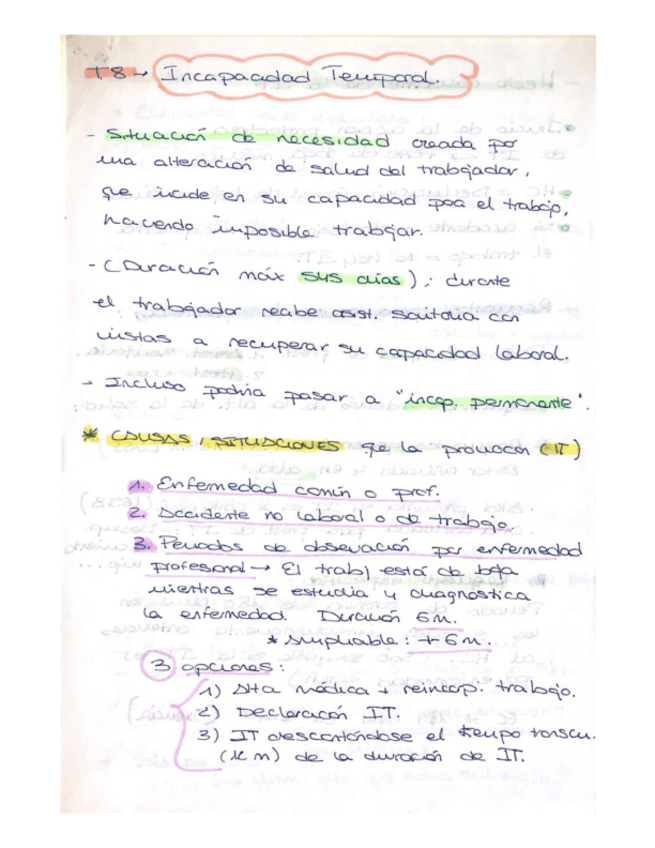 T8 → Incapacidad Temporal.
- Situación de necesidad creada por
una alteración de salud del trabajador,
que incide en su capacidad para el trabajo,
haciendo imposible trabajar.
- (Duración máx 545 días); durante
el trabajador recibe asist. sanitaria con
vistas a recuperar su capacidad laboral.
→ Incluso podría pasar a "incap. permanente".
* CAUSAS / SITUACIONES que la provocan (IT)
1. Enfermedad común o prof.
2. Accidente no laboral o de trabajo.
3. Periodos de observación por enfermedad
profesional → El trabj está de baja
mientras se estudia y diagnostica
la enfermedad. Duración 6m.
* Ampliable: + 6m.
3 opciones:
1) Alta médica + reincorp. trabajo.
2) Declaración IT.
3) IT descontándose el tiempo transcu.
(12 m) de la duración de IT.